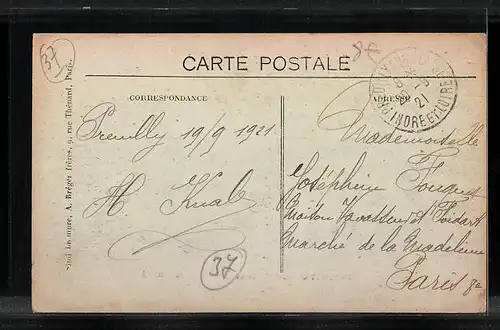 37
8€
CARTE POSTALE
CORRESPONDANCE
ADRESSE
INDRE ET LOIRE
21
Preuilly 19/9 1921
H. Knab
37
Mademoiselle
Joséphine Fouquet
Maison
Marché de la Madeleine
Paris 8e
A. Breger frères, 9, rue Thénard, Paris.